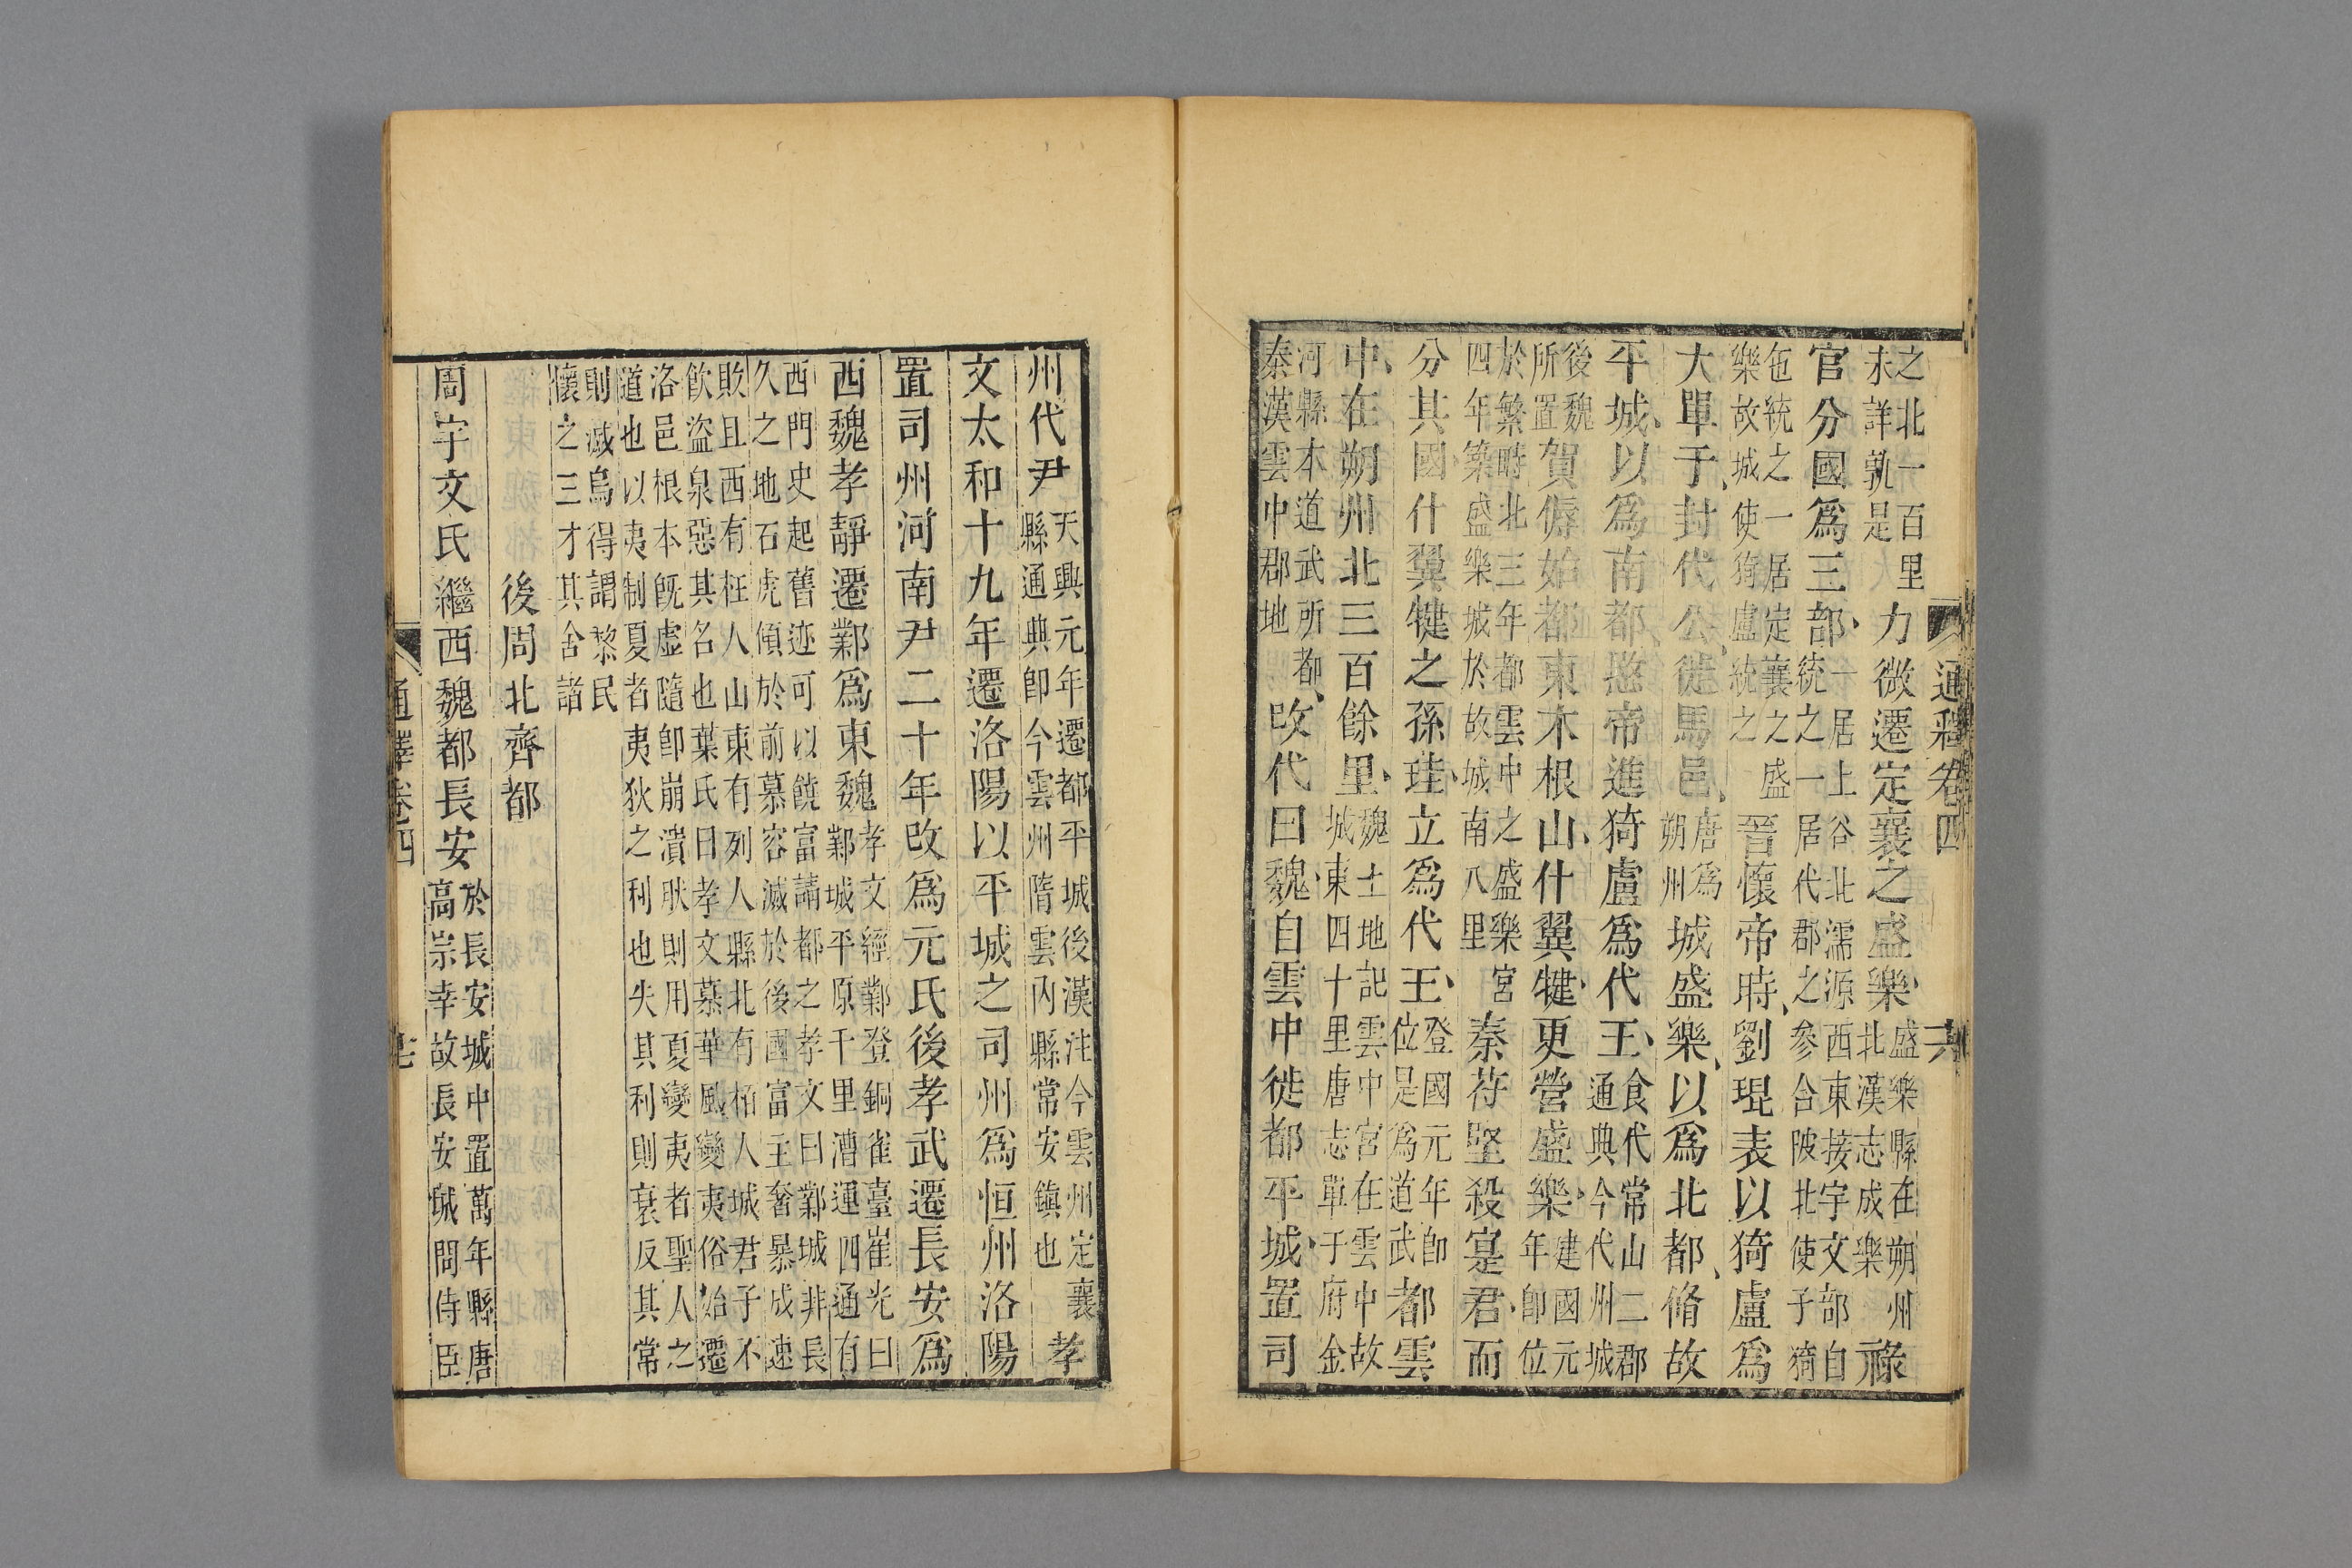 通釋卷四
之北一百里
未詳孰是
力微遷定襄之盛樂
盛樂縣在朔州
北漢志成樂
祿
官分國爲三部
一居上谷北濡源西東接宇文部自
統之一居代郡之參合陂北使子猗
㐌統之一居定襄之盛
樂故城使猗盧統之
晉懷帝時劉琨表以猗盧爲
大單于封代公徙馬邑
唐爲
朔州
城盛樂以爲北都脩故
平城以爲南都愍帝進猗盧爲代王
食代常山二郡
通典今代州城
後魏
所置
賀傉始都東木根山什翼犍更營盛樂
建國元
年卽位
於繁畤北三年都雲中之盛樂宮
四年築盛樂城於故城南八里
秦苻堅殺寔君而
分其國什翼犍之孫珪立爲代王
登國元年卽
位是爲道武
都雲
中在朔州北三百餘里
魏土地記雲中宮在雲中故
城東四十里唐志單于府金
河縣本道武所都
秦漢雲中郡地
改代曰魏自雲中徙都平城置司
州代尹
天興元年遷都平城後漢注今雲州定襄
縣通典卽今雲州隋雲內縣常安鎮也
孝
文太和十九年遷洛陽以平城之司州爲恒州洛陽
置司州河南尹二十年改爲元氏後孝武遷長安爲
西魏孝靜遷鄴爲東魏
孝文經鄴登銅雀臺崔光曰
鄴城平原千里漕運四通有
西門史起舊迹可以饒富請都之孝文曰鄴城非長
久之地石虎傾於前慕容滅於後國富主奢暴成速
敗且西有枉人山東有列人縣北有栢人城君子不
飲盜泉惡其名也葉氏曰孝文慕華風變夷俗始遷
洛邑根本旣虛隨卽崩潰耿則用夏變夷者聖人之
道也以夷制夏者夷狄之利也失其利則衰反其常
則滅烏得謂黎民
懷之三才其舍諸
後周北齊都
周宇文氏繼西魏都長安
於長安城中置萬年縣唐
高宗幸故長安城問侍臣
通釋卷四